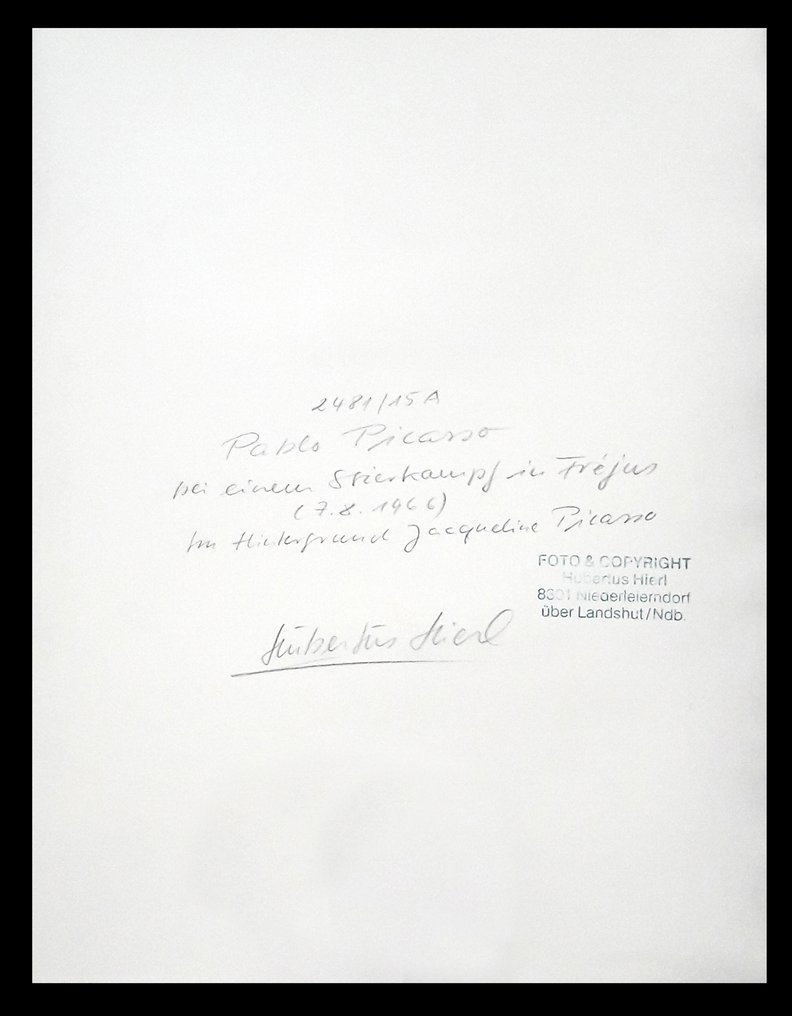 2481/15A
Pablo Picasso
bei einem Stierkampf in Fréjus
(7.8.1966)
Im Hintergrund Jacqueline Picasso
FOTO & COPYRIGHT
Hubertus Hierl
8301 Niederleierndorf
über Landshut/Ndb.
Hubertus Hierl